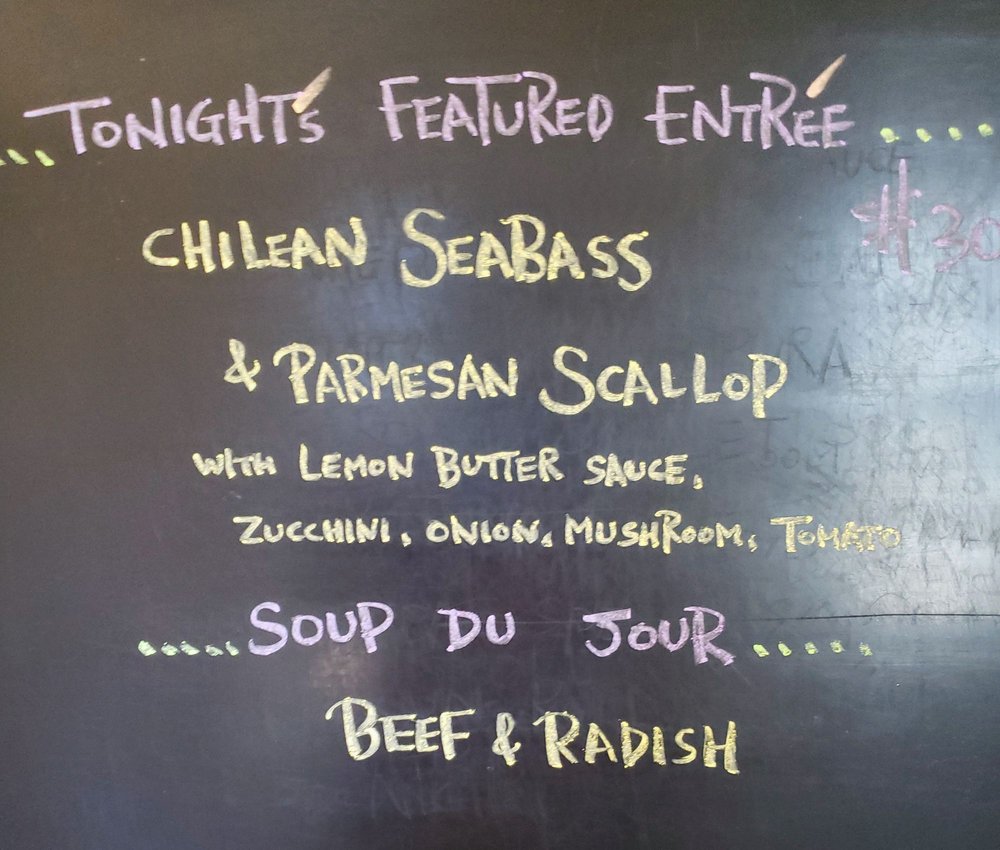 TONIGHT'S FEATURED ENTRÉE
CHILEAN SEABASS
& PARMESAN SCALLOP
WITH LEMON BUTTER SAUCE,
ZUCCHINI, ONION, MUSHROOM, TOMATO
SOUP DU JOUR
BEEF & RADISH